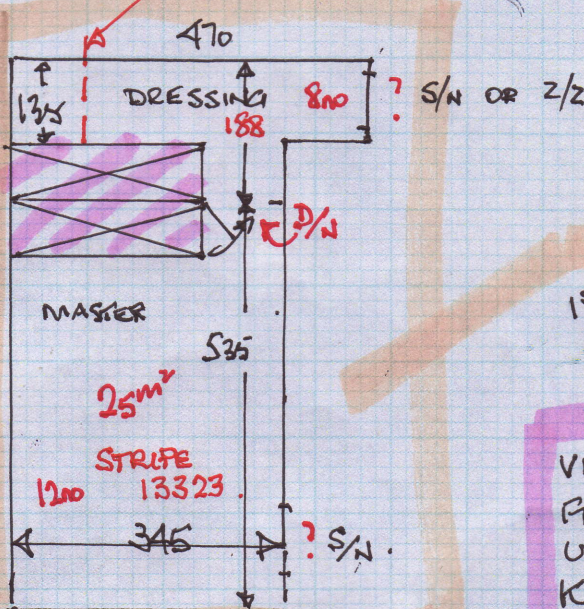 470
135
DRESSING
188
8no
?
S/N OR 2/2
D/N
MASTER
535
25m²
STRIPE
12no 13323
345
? S/N.